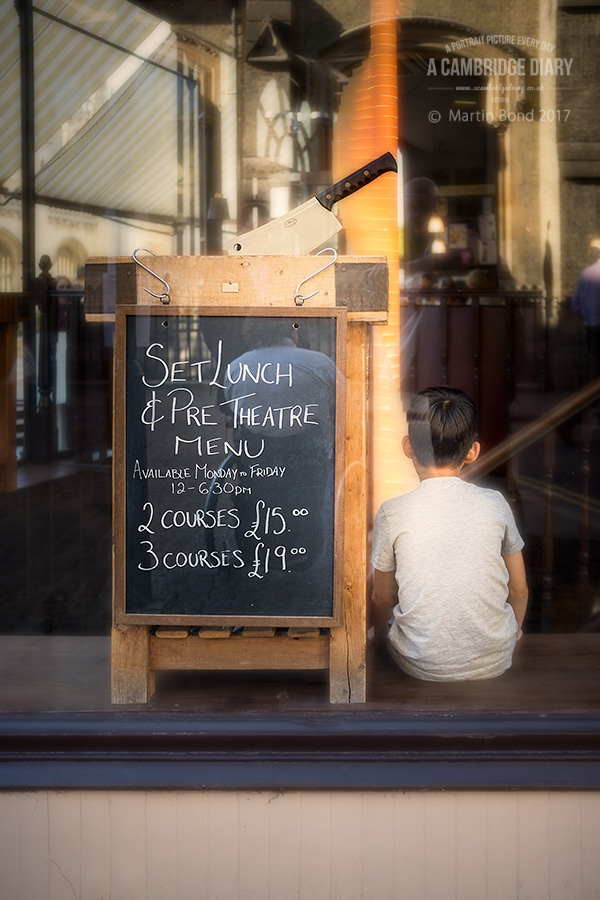 A PORTRAIT PICTURE EVERY DAY
A CAMBRIDGE DIARY
www.acambridgediary.co.uk
© Martin Bond 2017
SET LUNCH
& PRE THEATRE
MENU
AVAILABLE MONDAY to FRIDAY
12-6·30pm
2 COURSES £15.00
3 COURSES £19.00